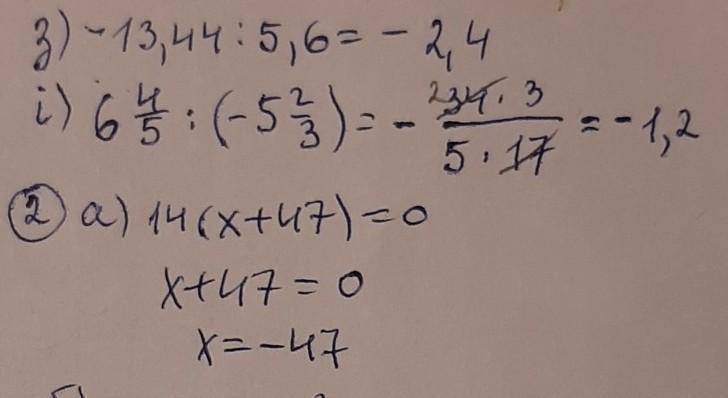 з) -13,44 : 5,6 = - 2,4
і) 6 4/5 : (-5 2/3) = - 2 34 · 3 / 5 · 17 = - 1,2
2 а) 14(x+47) = 0
x+47 = 0
x = -47